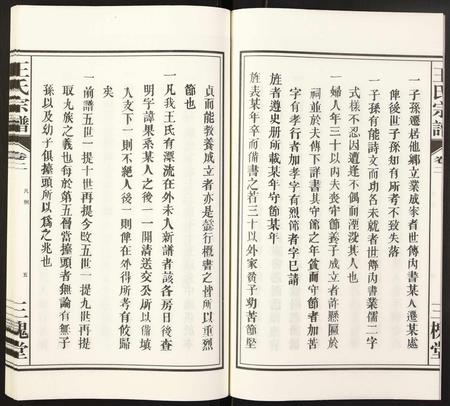 王氏宗譜
卷二
三槐堂
一子孫遷居他鄉立業成家者世傳內書某人遷某處
俾後世子孫知有所考不致失落
一子孫有能詩文而功名未就者世傳內書業儒二字
式樣不忍因遭逢不偶而湮沒其人也
一婦人年三十以內夫喪守節養子成立者許懸匾於
祠並於夫傳下詳書其守節之年貧而守節者加苦
字有孝行者加孝字有烈節者字已請
旌者遵史册所載某年守節某年
旌表某年卒而備書之若三十以外家貧子幼苦節堅
貞而能教養成立者亦是懿行概書之皆所以重烈
節也
一凡我王氏有漂流在外未入新譜者該各房日後查
明字諱果系某人之後一一開清送交公所以備填
入支下一則不絕人後一則俾在外得所考有攸歸
矣
一前譜五世一提十世再提今改五世一提九世再提
取九族之義也每於第五層當擡頭者無論有無子
孫以及幼子俱擡頭所以為之兆也
王氏宗譜
卷二
凡例
五
三槐堂